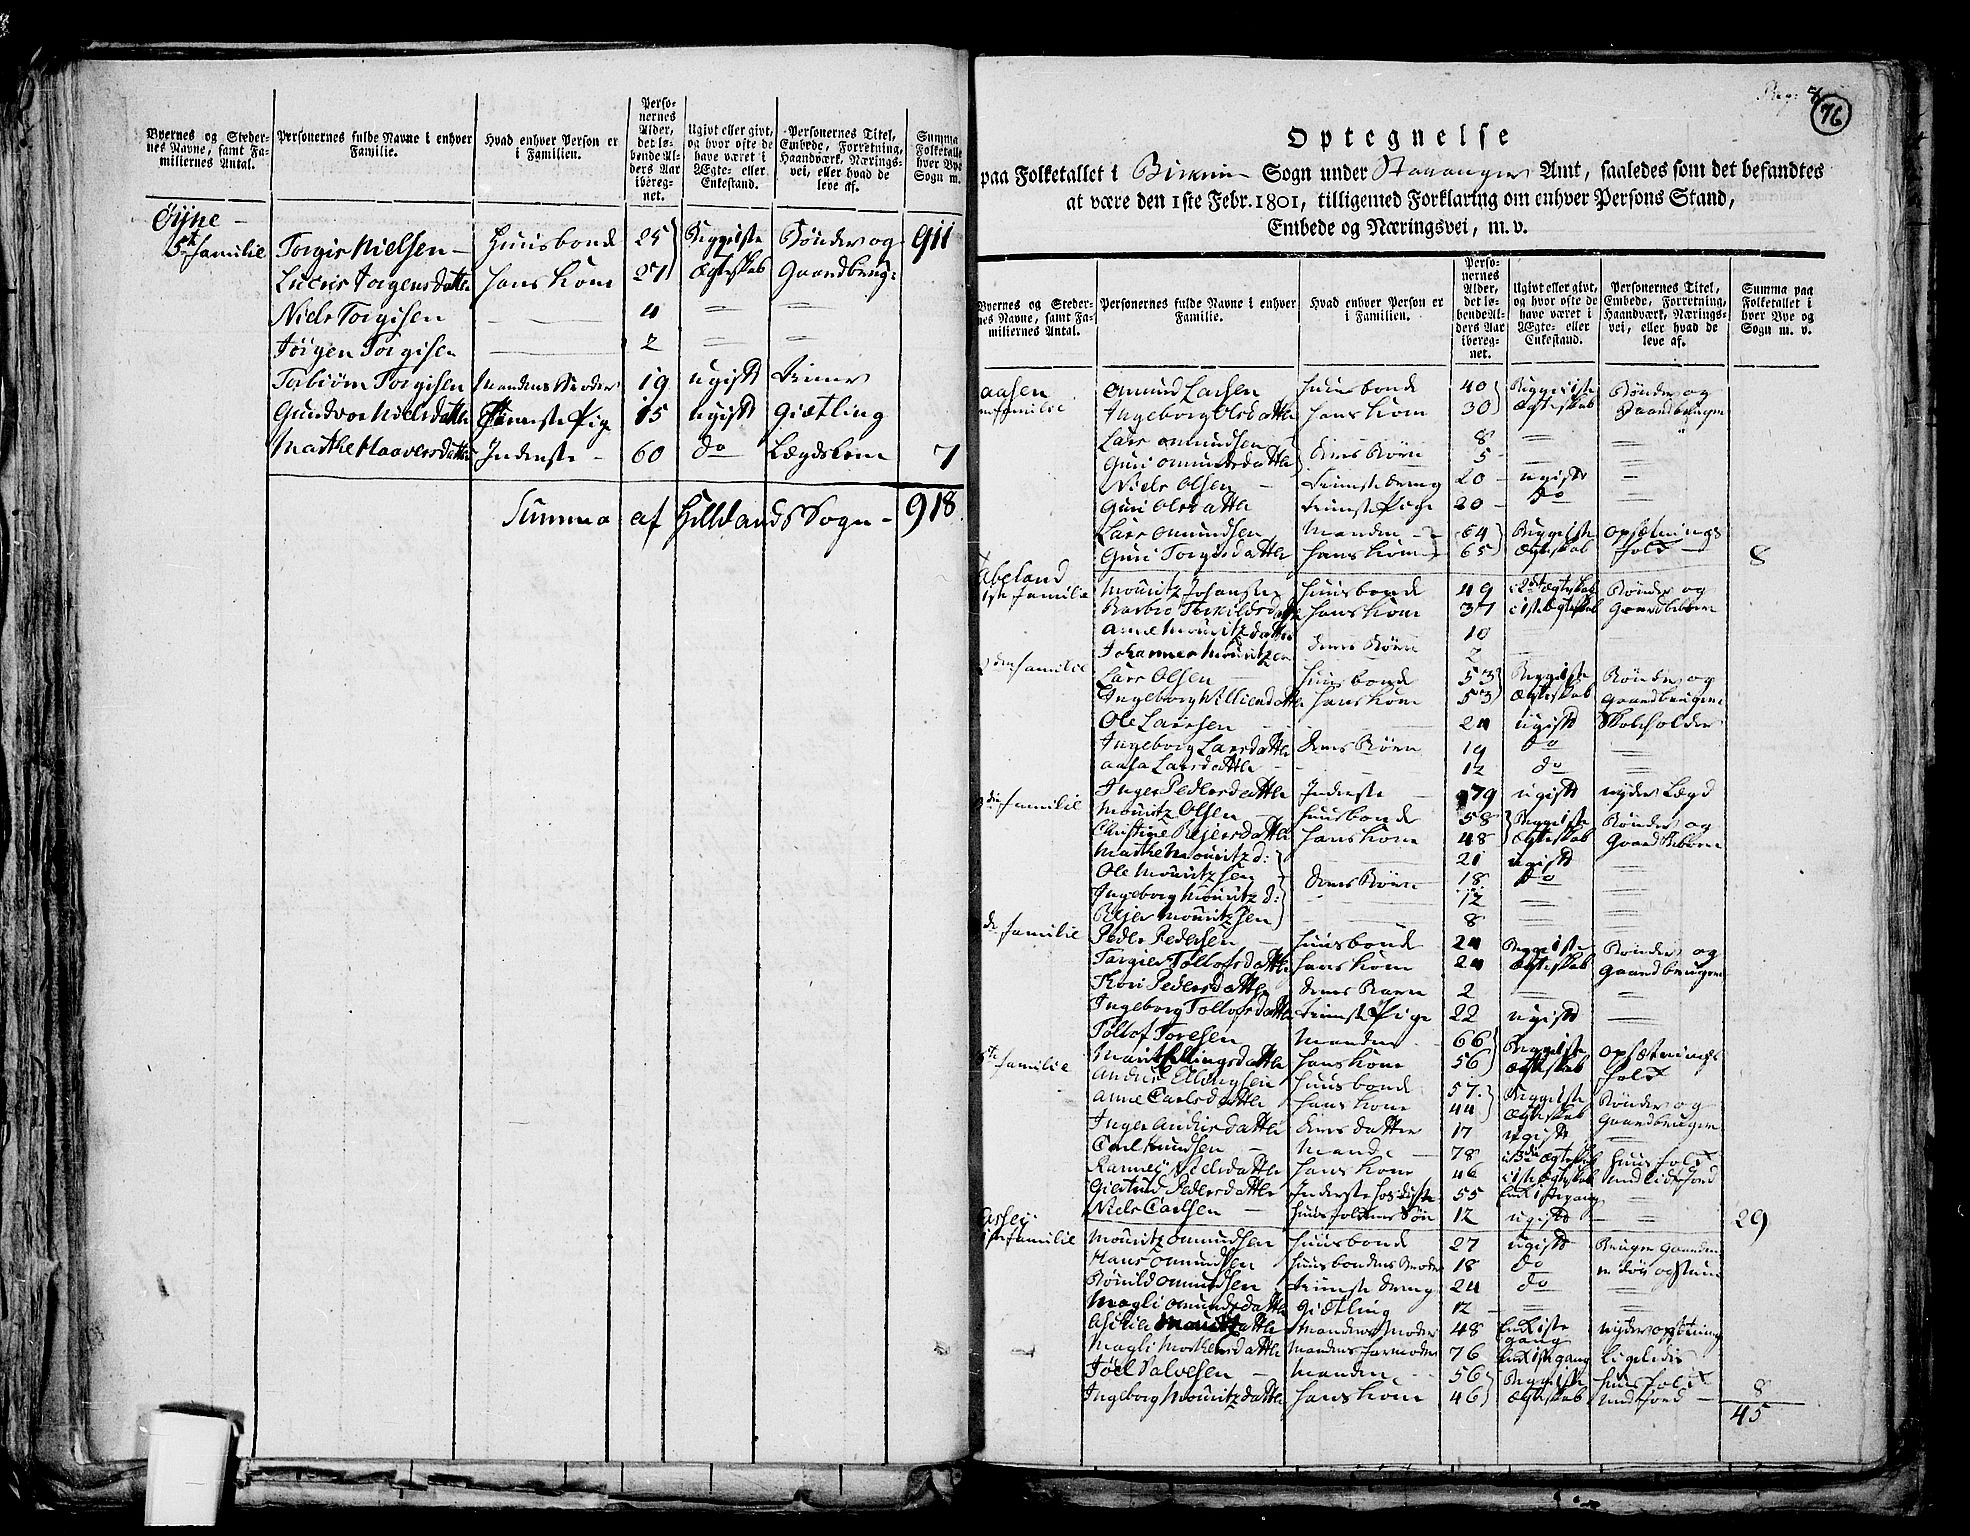 Byernes og Steder-
nes Navne, samt Fa-
miliernes Antal.
Personernes fulde Navne i enhver
Familie.
Hvad enhver Person er
i Familien.
Perso-
nernes
Alder,
det lø-
bende Al-
ders Aar
ibereg-
net.
Ugivt eller givt,
og hvor ofte de
have været i
Ægte- eller
Enkestand.
Personernes Titel,
Embede, Forretning,
Haandværk, Nærings-
vei, eller hvad de
leve af.
Summa
Folketallet
hver Bye
Sogn m.
Øÿne
5te familie Torgis Nielsen Huusbonde 25 Begge 1ste Bønder og 911
Jorgensdatter hans Kone 27 Ægteskab Gaardbrug:
Niels Torgisen — 4 = =
Jörgen Torgisen — 2
Torbiörn Torgisen Mandens Broder 19 ugift
Gundvor Nielsdatter Tieneste Pige 15 ugift Giætling
Marthe Haaversdatter Inderste 60 do Lægdslem 7
Summa af Hilllands Sogn 918
76
Optegnelse
paa Folketallet i Sogn under Stavanger Amt, saaledes som det befandtes
at være den 1ste Febr. 1801, tilligemed Forklaring om enhver Persons Stand,
Embede og Næringsvei, m. v.
Byernes og Steder-
nes Navne, samt Fa-
miliernes Antal.
Personernes fulde Navne i enhver
Familie.
Hvad enhver Person er
i Familien.
Perso-
nernes
Alder,
det lø-
bende Al-
ders Aar
ibereg-
net.
Ugivt eller givt,
og hvor ofte de
have været i
Ægte- eller
Enkestand.
Personernes Titel,
Embede, Forretning,
Haandværk, Nærings-
vei, eller hvad de
leve af.
Summa paa
Folketallet i
hver Bye og
Sogn m. v.
Aasen Omund Larsen Huusbonde 40 Begge 1ste Bønder og
familie Ingeborg Olsdatter hans Kone 30 Ægteskab Gaardbrugere
Lars Omundsen 8 = =
Guri Omundsdatter Deres Børn 5 — =
Niels Olsen Tieneste Dreng 20 ugift =
Guri Olsdatter Tieneste Pige 20 do =
Lars Omundsen Manden 64 Begge 1ste Opsætnings
Guri Torgisdatter hans Kone 65 Ægteskab folk 8
Abeland
1ste familie Mouritz Johansen Huusbonde 49 i 2det Ægteskab Bønder og
Barbro Torkildsdatter hans Kone 37 i 1ste Ægteskab Gaardbeboere
Anne Mouritzdatter 10
Johannes Mouritzen Deres Børn 7
2den familie Lars Olsen Huusbonde 53 Begge 1ste Bønder og
Ingeborg Villumsdatter hans Kone 53 Ægteskab Gaardbrugere
Ole Larssen 24 ugift Skoleholder
Ingeborg Larsdatter Deres Børn 19 do =
Aasa Larsdatter 12 do =
Inger Pedersdatter Inderste 79 ugift nyder Lægd
3die familie Mouritz Olsen Huusbonde 58 Begge 1ste Bønder og
Christine Rejersdatter hans Kone 48 Ægteskab Gaard Beboere
Marthe Mouritzd: 21 ugift =
Ole Mouritzsen Deres Børn 18 do =
Ingeborg Mouritzd: 12 = =
Rejer Mouritzsen 8 = =
de familie Peder Pedersen Huusbonde 24 Begge 1ste Bønder og
Tollofsdatter hans Kone 24 Ægteskab Gaardbrugere
Kari Pedersdatter deres Barn 2 — =
Ingeborg Tollofsdatter Tieneste Pige 22 ugift —
Tollof Toresen Manden 66 Begge 1ste Opsætnings
Ellingsdatter hans Kone 56 Ægteskab folk
5te familie Anders Ellingsen Huusbonde 57 Begge 1ste Bønder og
Anne Carlsdatter hans Kone 44 Ægteskab Gaardbrugere
Inger Andersdatter deres datter 17 ugift =
Carl Knudsen Mand 78 i 3die Ægteskab Huusfolk
Nielsdatter hans Kone 46 i 1ste Ægteskab med lidt Jord
Giertrud Pedersdatter Inderste hos disse 55 Enke 1ste gang
Niels Carlsen Huusfolkenes Søn 12 ugift = 29
1ste familie Mouritz Omundsen Huusbonde 27 ugift Bruger Gaarden
Hans Omundsen Huusbondens Broder 18 do
Omundsen Tieneste Dreng 24 do =
Magli Omundsdatter Giætling 12 = =
Mouritzdatter Mandens Moder 48 Enke 1ste gang nyder opsætning
Magli datter Mandens Farmoder 76 Enke 1ste gang Ligeledes
Joel Salvesen Manden 56 Begge 1ste Huusfolk
Ingeborg Mouritzdatter hans Kone 46 Ægteskab med Jord 8
45